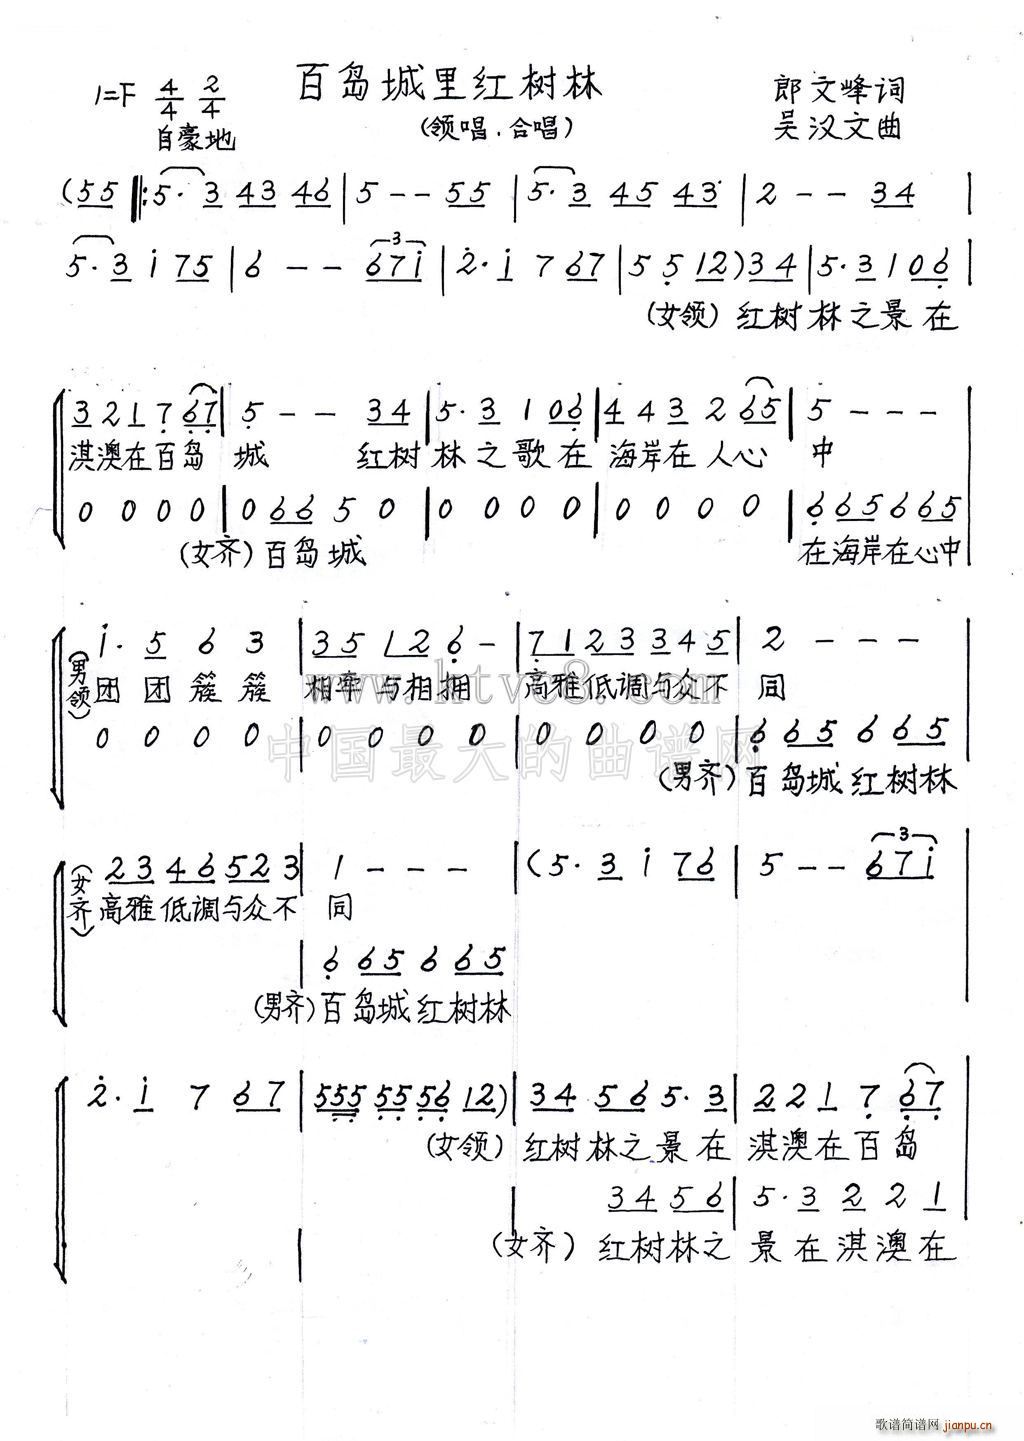 百岛城里红树林
1=F 4/4 2/4
(领唱.合唱)
郎文峰词
吴汉文曲
自豪地
(55 ‖:5·3 43 46 | 5 - - 55 | 5·3 45 43 | 2 - - 34 |
5·3 i 75 | 6 - - 67i | 2·i 7 67 | 5 5 12) 34 | 5·3 1 06 |
(女领) 红树林之景在
3 2 1 7 67 | 5 - - 34 | 5·3 1 06 | 4 4 3 2 65 | 5 - - -
淇澳在百岛 城 红树林之歌在 海岸在人心 中
0 0 0 0 | 0 66 5 0 | 0 0 0 0 | 0 0 0 0 | 6 65 6 65
(女齐) 百岛城 在海岸在心中
(男领)
i· 5 6 3 | 35 12 6 - | 71 23 34 5 | 2 - - -
团团簇簇 相牵与相拥 高雅低调与众不 同
0 0 0 0 | 0 0 0 0 | 0 0 0 0 | 6 65 6 65
(男齐) 百岛城红树林
(女齐)
23 46 52 3 | 1 - - - | (5·3 i 76 | 5 - - 67i
高雅低调与众不 同
6 65 6 65
(男齐) 百岛城红树林
2·i 7 67 | 555 55 56 12) | 34 56 5·3 | 22 1 7 67
(女领) 红树林之景在 淇澳在百岛
34 56 | 5·3 2 2 1
(女齐) 红树林之 景在淇澳在
www.hrtv8.com
中国最大的曲谱网
歌谱简谱网 jianpu.cn